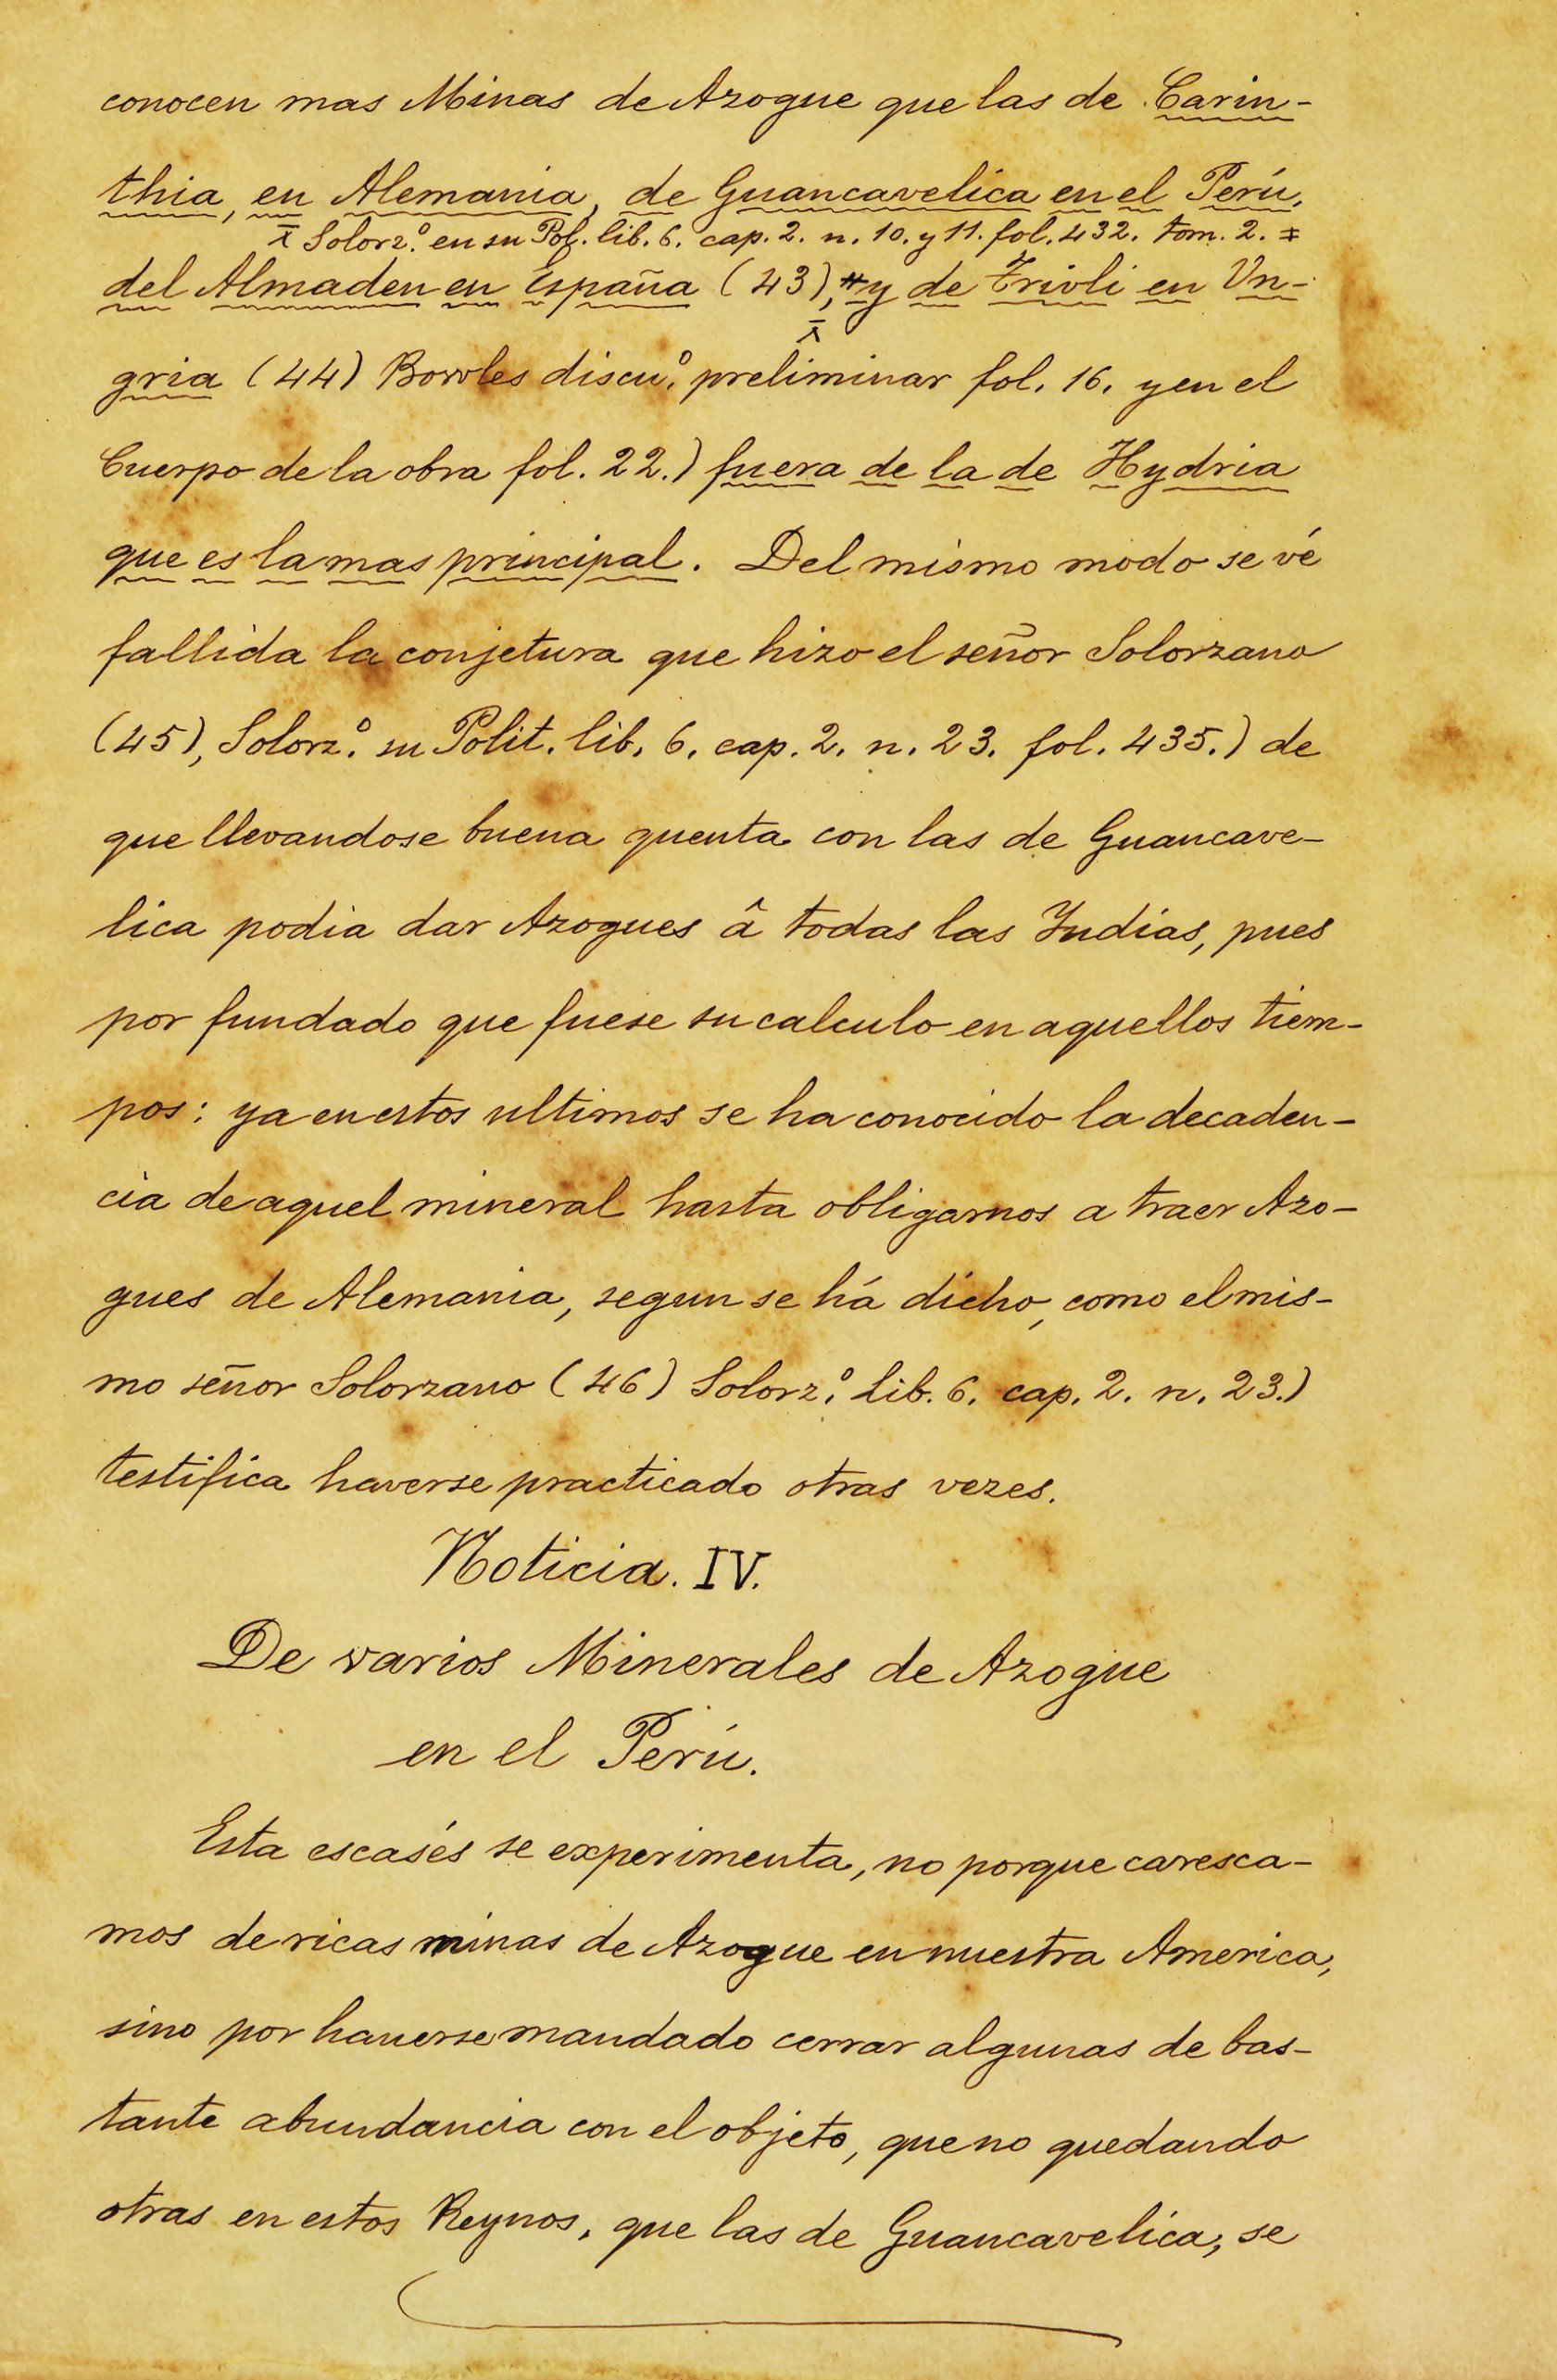 conocen mas Minas de Azogue que las de Carin-
thia, en Alemania, de Guancavelica en el Perú,
⊼ Solorz.º en su Pol. lib. 6. cap. 2. n. 10. y 11. fol. 432. tom. 2. ⧧
del Almaden en España (43), # y de Trivli en Vn-
gria (44) Bowles discu.º preliminar fol. 16. y en el
Cuerpo de la obra fol. 22.) fuera de la de Hydria
que es la mas principal. Del mismo modo se vé
fallida la conjetura que hizo el señor Solorzano
(45), Solorz.º su Polit. lib. 6. cap. 2. n. 23. fol. 435.) de
que llevandose buena quenta con las de Guancave-
lica podia dar Azogues â todas las Yndias, pues
por fundado que fuese su calculo en aquellos tiem-
pos: ya en estos ultimos se ha conocido la decaden-
cia de aquel mineral hasta obligarnos a traer Azo-
gues de Alemania, segun se há dicho, como el mis-
mo señor Solorzano (46) Solorz.º Lib. 6. cap. 2. n. 23.)
testifica haverse practicado otras vezes.
Noticia. IV.
De varios Minerales de Azogue
en el Perú.
Esta escasés se experimenta, no porque caresca-
mos de ricas minas de Azogue en nuestra America,
sino por hauerse mandado cerrar algunas de bas-
tante abundancia con el objeto, que no quedando
otras en estos Reynos, que las de Guancavelica, se